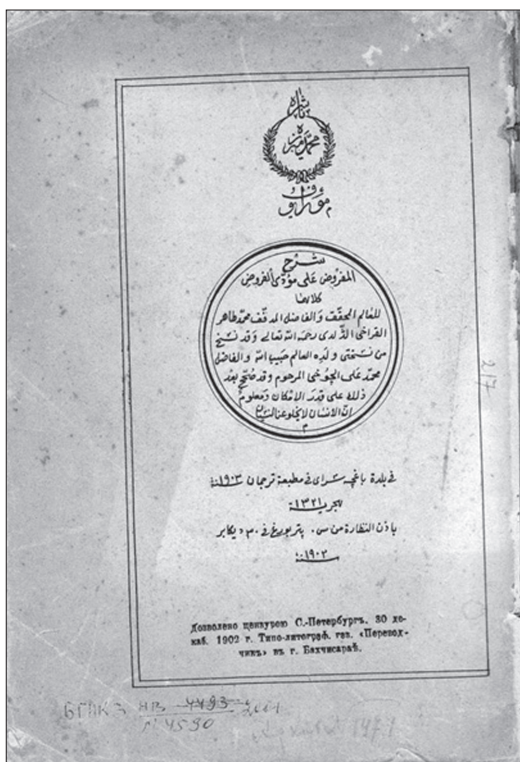 ناشره
محمد ميرزه
موراوف
شرح
المفروض على مؤدى الفروض
كلاهما
للعالم المحقق والفاضل المدقق محمد طاهر
القراخى الدلدى رحمه الله تعالى وقد نسخ
من نسختى ولده العالم حبيب الله والفاضل
محمد على الچوخى المرحوم وقد صحح بعد
ذلك على قدر الامكان ومعلوم
ان الانسان لا يخلو عن النسيان
م
فى بلدة باغچه سراى فى مطبعة ترجمان ١٩٠٣سنة
١٣٢١
باذن النظارة من س. پتربورغ فى ٣٠ ديكابر
١٩٠٢سنة
Дозволено цензурою С.-Петербургъ. 30 де-
каб. 1902 г. Типо-литограф. газ. «Перевод-
чикъ» въ г. Бахчисараѣ.
4493
4590